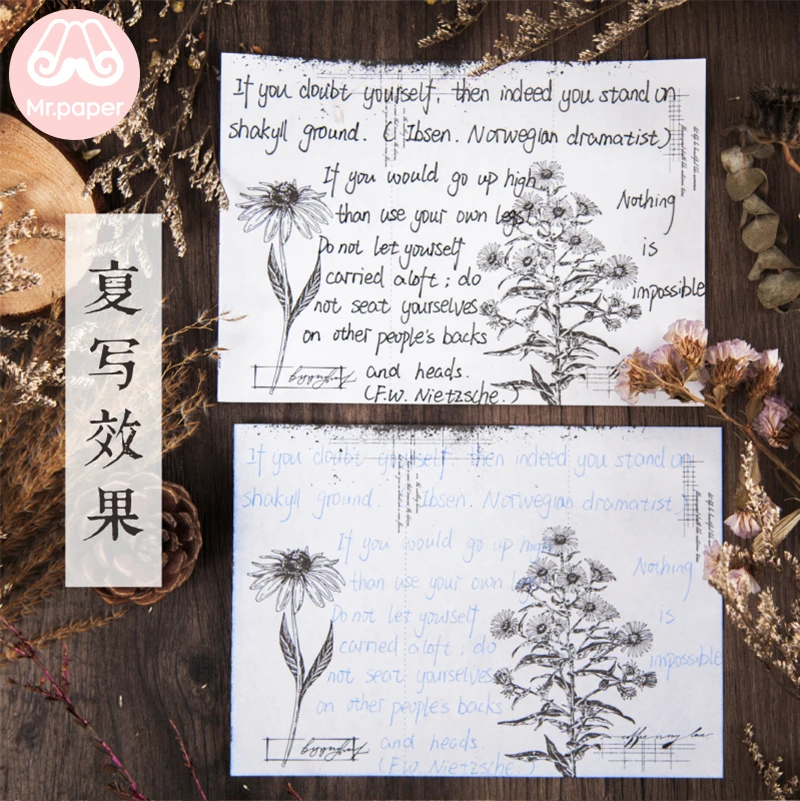 Mr.paper
复写效果
If you doubt yourself, then indeed you stand on
shakyll ground. ( Ibsen. Norwegian dramatist)
If you would go up high,
than use your own legs!
Do not let yourself
carried aloft ; do
not seat yourselves
on other people's backs
and heads.
(F.W. Nietzsche.)
Nothing
is
impossible
If you doubt yourself, then indeed you stand on
shakyll ground. Ibsen. Norwegian dramatist)
If you would go up high
than use your own legs
Do not let yourself
carried aloft ; do
not seat yourselves
on other people's backs
and heads.
(F.W. Nietzsche.)
Nothing
is
impossible